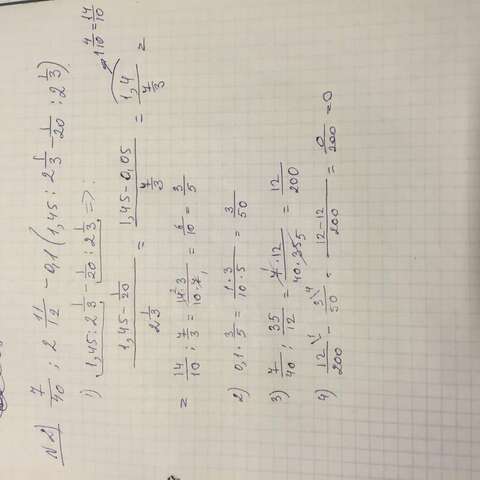 N2) 7/40 : 2 11/12 - 0,1 (1,45 : 2 1/3 - 1/20 : 2 1/3)
1) 1,45 : 2 1/3 - 1/20 : 2 1/3 => :
(1,45 - 1/20)/(2 1/3) = (1,45 - 0,05)/(7/3) = 1,4/(7/3) = 1 4/10 = 14/10
= 14/10 : 7/3 = (14² · 3)/(10 · 7₁) = 6/10 = 3/5
2) 0,1 · 3/5 = (1 · 3)/(10 · 5) = 3/50
3) 7/40 : 35/12 = (7¹ · 12)/(40 · 35 5) = 12/200
4) 12/200 \1 - 3/50 \4 = (12 - 12)/200 = 0/200 = 0